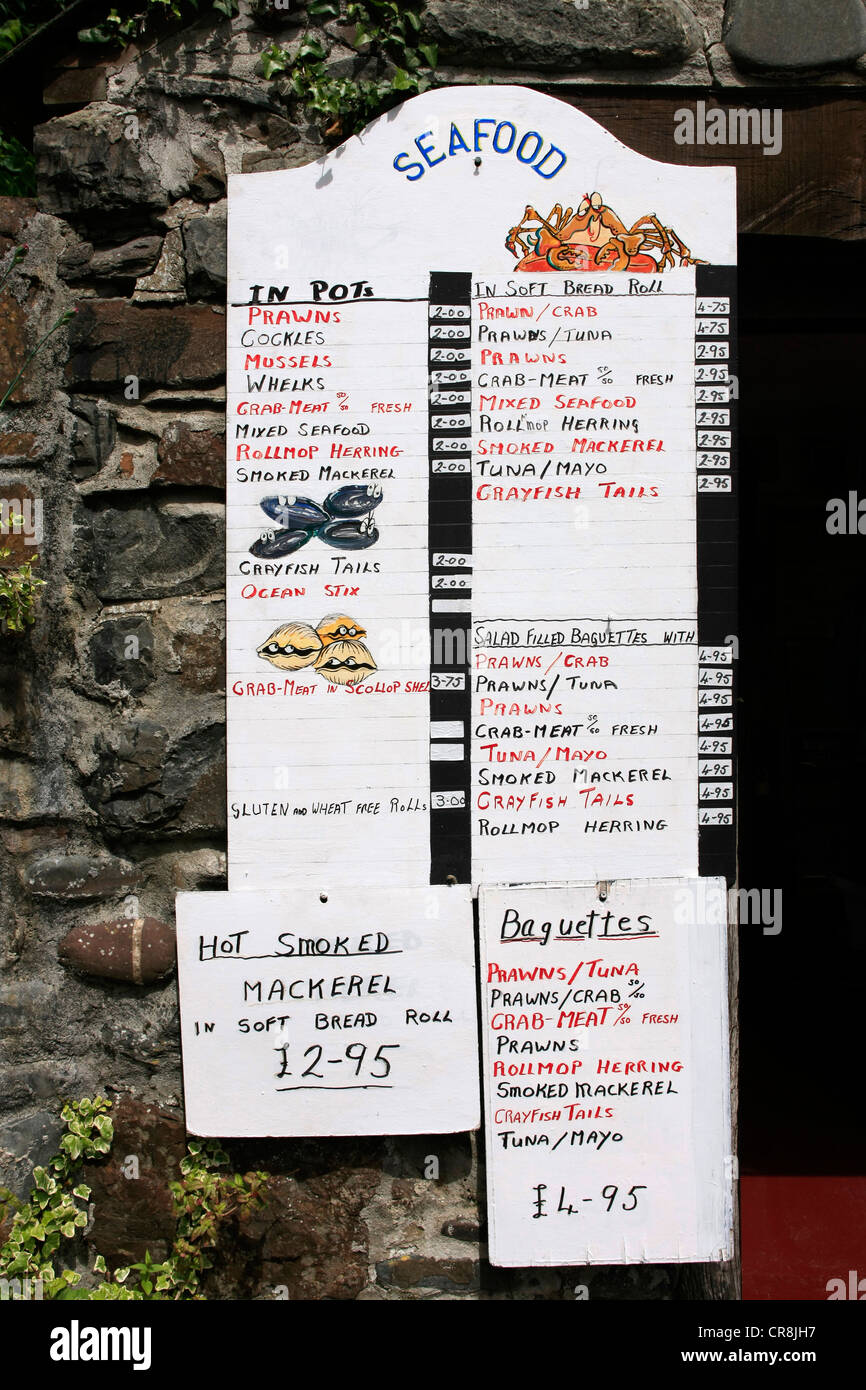 SEAFOOD
IN POTS
PRAWNS 2-00
COCKLES 2-00
MUSSELS 2-00
WHELKS 2-00
CRAB-MEAT 50/50 FRESH 2-00
MIXED SEAFOOD 2-00
ROLLMOP HERRING 2-00
SMOKED MACKEREL 2-00
CRAYFISH TAILS 2-00
OCEAN STIX 2-00
CRAB-MEAT IN SCOLLOP SHEL 3-75
GLUTEN AND WHEAT FREE ROLLS 3-00
IN SOFT BREAD ROLL
PRAWN/CRAB 4-75
PRAWNS/TUNA 4-75
PRAWNS 2-95
CRAB-MEAT 50/50 FRESH 2-95
MIXED SEAFOOD 2-95
ROLLMOP HERRING 2-95
SMOKED MACKEREL 2-95
TUNA/MAYO 2-95
CRAYFISH TAILS 2-95
SALAD FILLED BAGUETTES WITH
PRAWNS/CRAB 4-95
PRAWNS/TUNA 4-95
PRAWNS 4-95
CRAB-MEAT 50/50 FRESH 4-95
TUNA/MAYO 4-95
SMOKED MACKEREL 4-95
CRAYFISH TAILS 4-95
ROLLMOP HERRING 4-95
HOT SMOKED
MACKEREL
IN SOFT BREAD ROLL
£2-95
Baguettes
PRAWNS/TUNA
PRAWNS/CRAB 50/50
CRAB-MEAT 50/50 FRESH
PRAWNS
ROLLMOP HERRING
SMOKED MACKEREL
CRAYFISH TAILS
TUNA/MAYO
£4-95
alamy
Image ID: CR8JH7
www.alamy.com